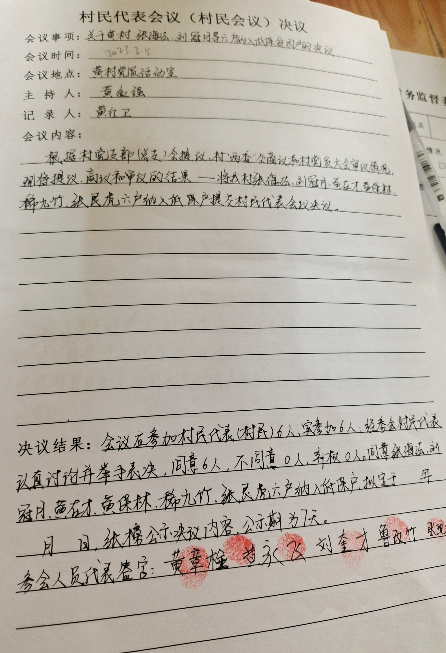 村民代表会议（村民会议）决议
会议事项：关于黄村 张海运、刘冠月等六户纳入低保贫困户的决议
会议时间：2023.2.5
会议地点：黄村党员活动室
主 持 人：黄金强
记 录 人：黄红卫
会议内容：
根据村党支部(总支)会提议，村"两委"会商议和村党员大会审议情况，
现将提议、商议和审议的结果——将我村张海运、刘冠月、黄在才、黄保林、
稀九竹、张民虎六户纳入低保户提交村民代表会议决议。
决议结果：会议应参加村民代表(村民)6人，实参加6人，经参会村民代表
认真讨论并举手表决，同意6人，不同意0人，弃权0人。同意张海运、刘
冠月、黄在才、黄保林、稀九竹、张民虎六户纳入低保户，拟定于 年
月 日，张榜公示决议内容，公示期为7天。
参会人员代表签字：黄章栓 刘奎才
务监督